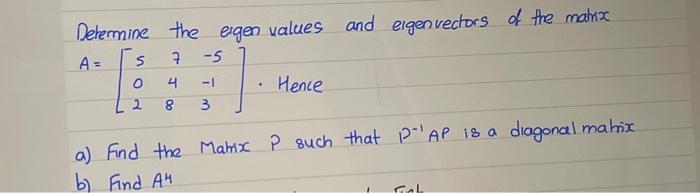 Determine the eigen values and eigenvectors of the matrix
A = [ 5 7 -5
0 4 -1
2 8 3 ] . Hence
a) Find the Matrix P such that P⁻¹AP is a diagonal matrix
b) Find A4